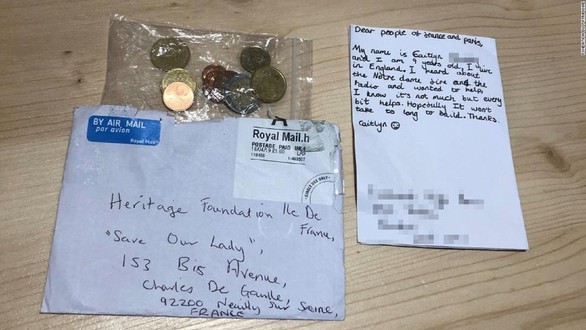 Dear people of france and paris,
My name is Caitlyn
and I am 9 years old, I live
in England. I heard about
the Notre dame fire and the
radio and wanted to help
I know it's not much but every
bit helps. Hopefully It won't
take to long to build. Thanks.
Caitlyn
BY AIR MAIL
par avion
Royal Mail
Royal Mail.h
POSTAGE PAID UK
Heritage Foundation Ile De
France,
"Save Our Lady",
153 Bis Avenue,
Charles De Gaulle,
92200 Neuilly Sur Seine,
FRANCE